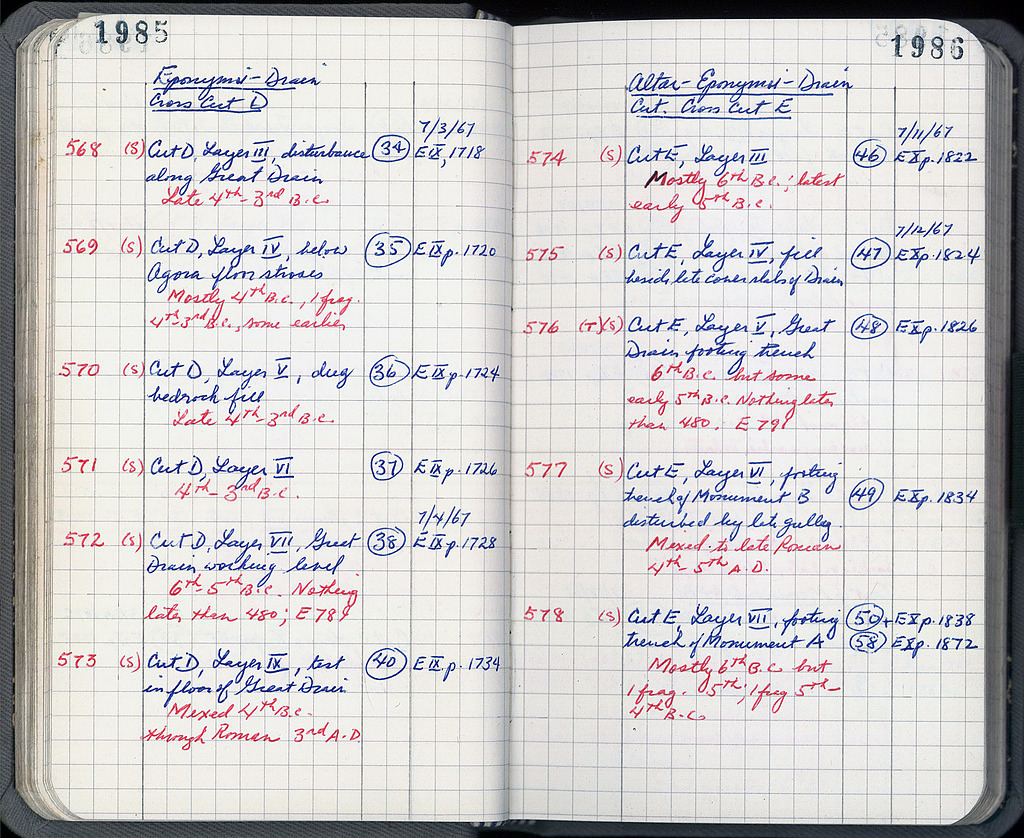 1985
Eponymoi-Drain
Cross Cut D
7/3/67
568 (S) Cut D, Layer III, disturbance (34) E IX, 1718
along Great Drain
Late 4th-3rd B.C.
569 (S) Cut D, Layer IV, below (35) E IX p. 1720
Agora floor stroses
Mostly 4th B.C., 1 frag.
4th-3rd B.C., some earlier
570 (S) Cut D, Layer V, dug (36) E IX p. 1724
bedrock fill
Late 4th-3rd B.C.
571 (S) Cut D, Layer VI (37) E IX p. 1726
4th-3rd B.C.
7/4/67
572 (S) Cut D, Layer VII, Great (38) E IX p. 1728
Drain working level
6th-5th B.C. Nothing
later than 480; E 789
573 (S) Cut D, Layer IX, test (40) E IX p. 1734
in floor of Great Drain
Mixed 4th B.C.
through Roman 3rd A.D.
1986
Altar-Eponymoi-Drain
Cut. Cross Cut E
7/11/67
574 (S) Cut E, Layer III (46) E X p. 1822
Mostly 6th B.C.; latest
early 5th B.C.
7/12/67
575 (S) Cut E, Layer IV, fill (47) E X p. 1824
beside late cover slabs of Drain
576 (T)(S) Cut E, Layer V, Great (48) E X p. 1826
Drain footing trench
6th B.C. but some
early 5th B.C. Nothing later
than 480. E 791
577 (S) Cut E, Layer VI, footing
trench of Monument B (49) E X p. 1834
disturbed by late gulley.
Mixed to late Roman
4th-5th A.D.
578 (S) Cut E, Layer VII, footing (50)+ E X p. 1838
trench of Monument A (58) E X p. 1872
Mostly 6th B.C. but
1 frag. 5th; 1 frag 5th-
4th B.C.